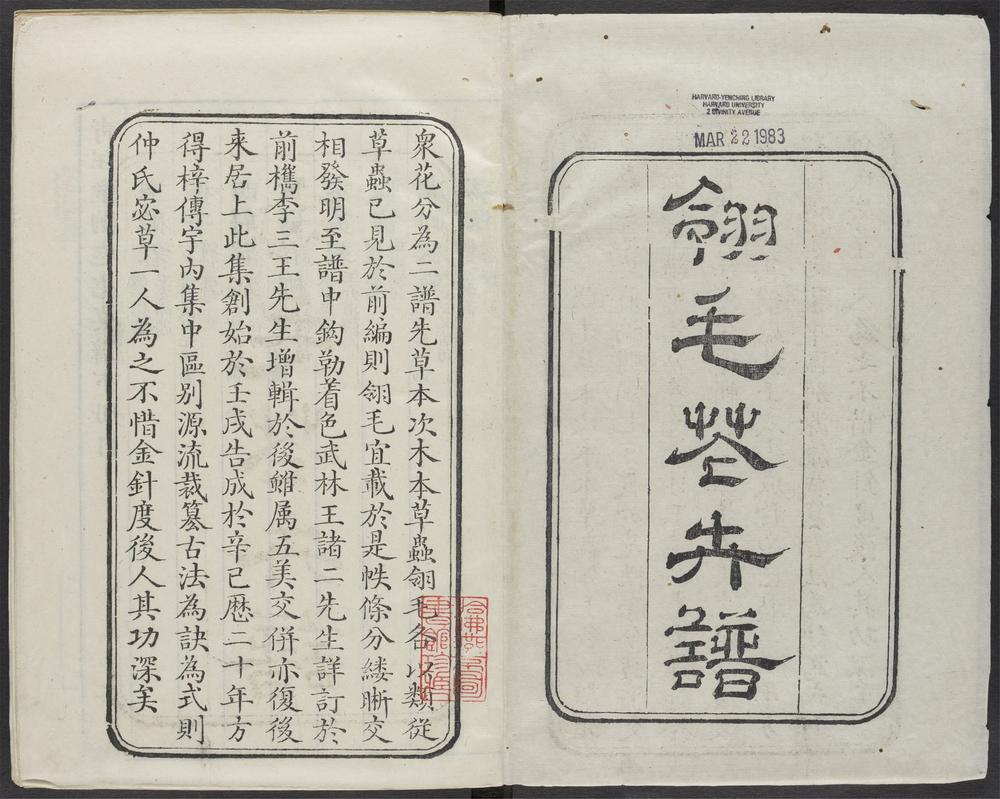 HARVARD-YENCHING LIBRARY
HARVARD UNIVERSITY
2 DIVINITY AVENUE
MAR 22 1983
翎毛花卉譜
衆花分為二譜先草本次木本草蟲翎毛各以類從
草蟲已見於前編則翎毛宜載於是帙條分縷晰交
相發明至譜中鈎勒着色武林王諸二先生詳訂於
前檇李三王先生增輯於後雖属五美交併亦復後
来居上此集創始於壬戌告成於辛巳歴二十年方
得梓傳宇内集中區别源流裁纂古法為訣為式則
仲氏宓草一人為之不惜金針度後人其功深矣